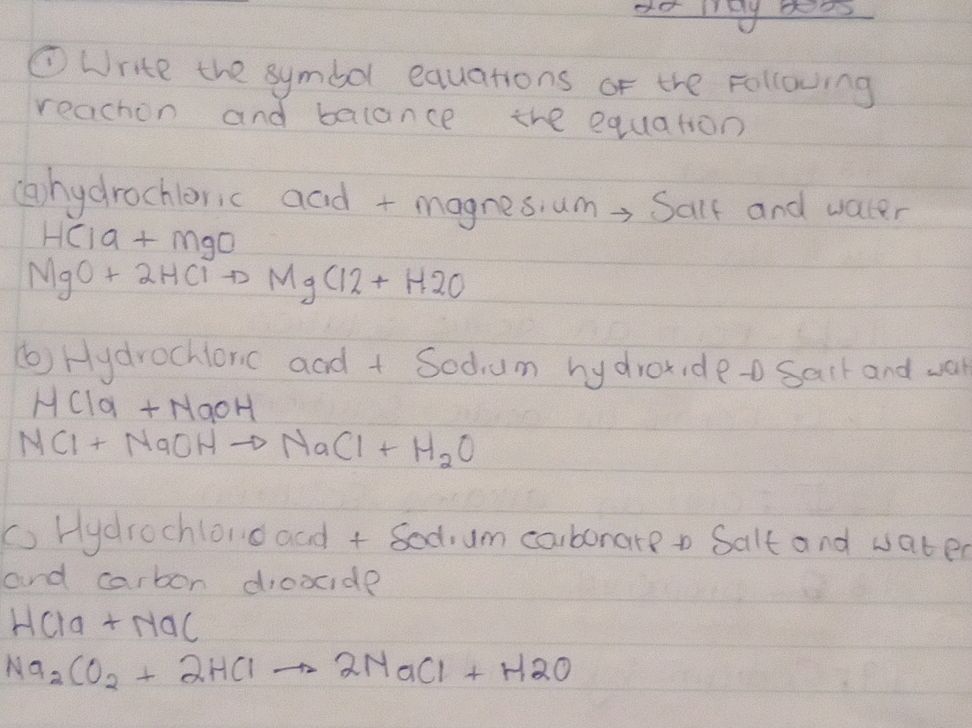 22 May 2025
① Write the symbol equations of the following
reaction and balance the equation
(a) hydrochloric acid + magnesium → Salt and water
HCla + mgO
MgO + 2HCl → MgCl2 + H2O
(b) Hydrochloric acid + Sodium hydroxide → Salt and wat
HCla + NaOH
HCl + NaOH → NaCl + H₂O
c) Hydrochloric acid + Sodium carbonate → Salt and water
and carbon dioxide
HCla + NaC
Na₂CO₂ + 2HCl → 2NaCl + H2O